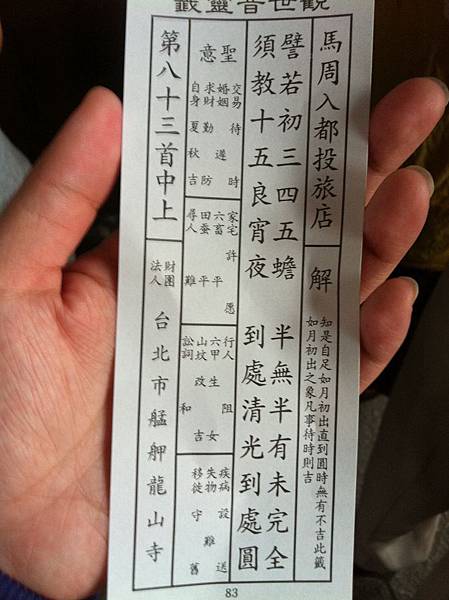 觀世音靈籤
馬周入都投旅店
解
知是自足如月初出直到圓時無有不吉此籤
如月初出之象凡事待時則吉
譬若初三四五蟾 半無半有未完全
須教十五良宵夜 到處清光到處圓
聖意
交易 待時
婚姻 遲
求財 勤防
自身 夏秋吉
家宅 許愿
六畜 平
田蚕 平
尋人 難
行人 阻
六甲 生女
山坟 改吉
訟詞 和
疾病 設送
失物 難
移徙 守舊
第八十三首中上
財團法人 台北市艋舺龍山寺
83